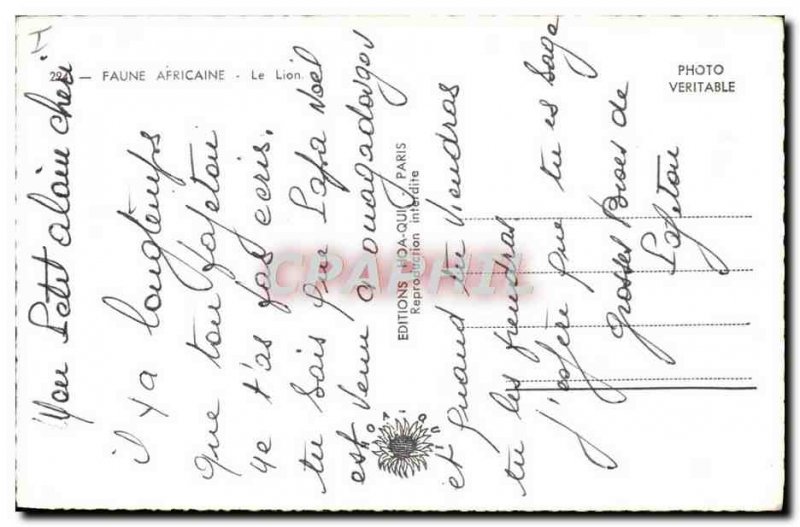 I
22 — FAUNE AFRICAINE - Le Lion.
PHOTO
VERITABLE
EDITIONS HOA-QUI - PARIS
Reproduction interdite
HOA QUI
CPAPHIL
Mon Petit alain cheri
il y a longtemps
que ton
ne t'as pas ecris.
tu sais que Papa Noël
est venu a ouagadougou
et quand tu viendras
tu les prendras.
j'espère que tu es sage
grosses Bises de